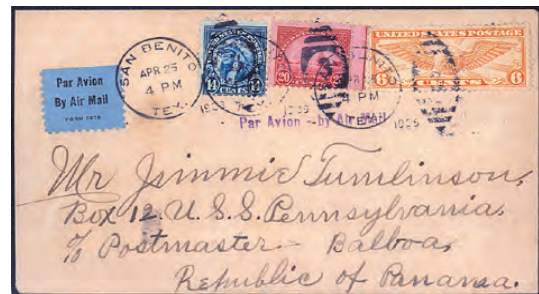 Par Avion
By Air Mail
FORM 2978
SAN BENITO
APR 25
4 PM
TEX.
1935
14 CENTS 14
20 20
UNITED STATES POSTAGE
6 CENTS 6
4 PM
TEX.
1935
Par Avion -- by Air Mail
Mr Jimmie Tumlinson,
Box 12. U.S.S. Pennsylvania,
c/o Postmaster - Balboa,
Republic of Panama.